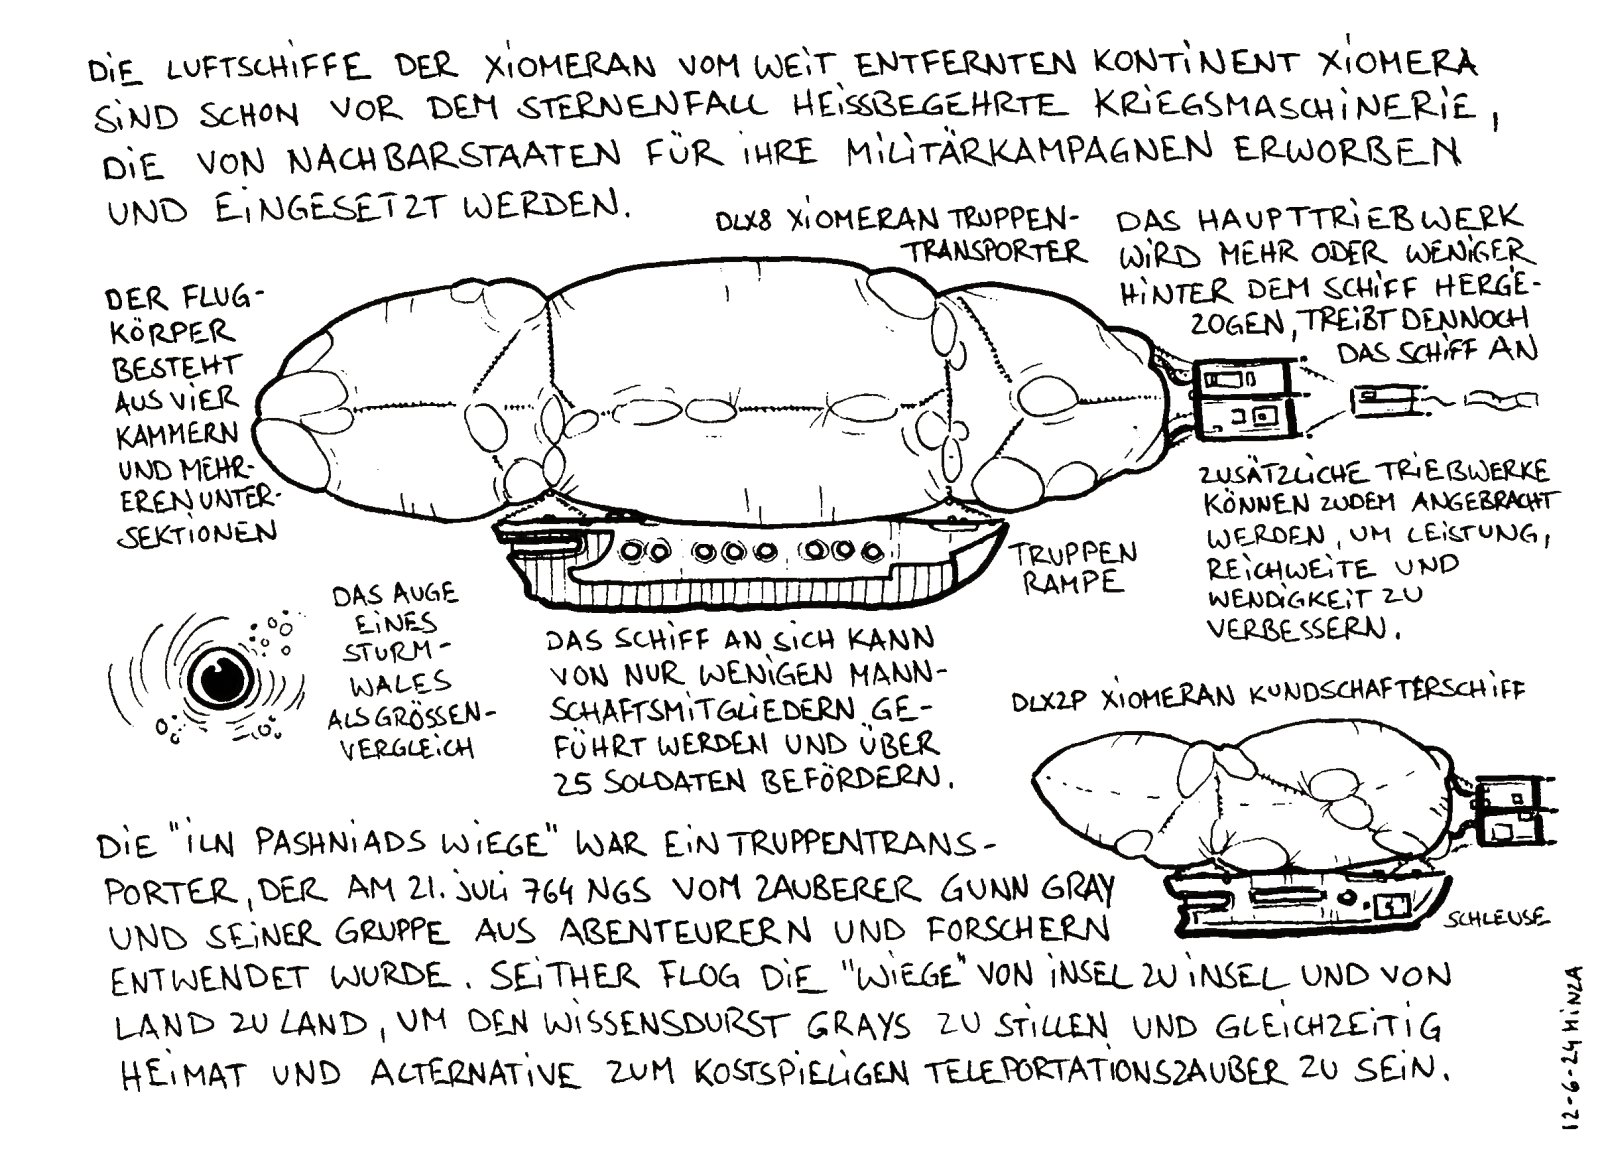 DIE LUFTSCHIFFE DER XIOMERAN VOM WEIT ENTFERNTEN KONTINENT XIOMERA
SIND SCHON VOR DEM STERNENFALL HEISSBEGEHRTE KRIEGSMASCHINERIE,
DIE VON NACHBARSTAATEN FÜR IHRE MILITÄRKAMPAGNEN ERWORBEN
UND EINGESETZT WERDEN.
DLX8 XIOMERAN TRUPPEN-
TRANSPORTER
DAS HAUPTTRIEBWERK
WIRD MEHR ODER WENIGER
HINTER DEM SCHIFF HERGE-
ZOGEN, TREIBT DENNOCH
DAS SCHIFF AN
DER FLUG-
KÖRPER
BESTEHT
AUS VIER
KAMMERN
UND MEHR-
EREN UNTER-
SEKTIONEN
ZUSÄTZLICHE TRIEBWERKE
KÖNNEN ZUDEM ANGEBRACHT
WERDEN, UM LEISTUNG,
REICHWEITE UND
WENDIGKEIT ZU
VERBESSERN.
TRUPPEN
RAMPE
DAS AUGE
EINES
STURM-
WALES
ALS GRÖSSEN-
VERGLEICH
DAS SCHIFF AN SICH KANN
VON NUR WENIGEN MANN-
SCHAFTSMITGLIEDERN GE-
FÜHRT WERDEN UND ÜBER
25 SOLDATEN BEFÖRDERN.
DLX2P XIOMERAN KUNDSCHAFTERSCHIFF
SCHLEUSE
DIE "ILN PASHNIADS WIEGE" WAR EIN TRUPPENTRANS-
PORTER, DER AM 21. JULI 764 NGS VOM ZAUBERER GUNN GRAY
UND SEINER GRUPPE AUS ABENTEURERN UND FORSCHERN
ENTWENDET WURDE. SEITHER FLOG DIE "WIEGE" VON INSEL ZU INSEL UND VON
LAND ZU LAND, UM DEN WISSENSDURST GRAYS ZU STILLEN UND GLEICHZEITIG
HEIMAT UND ALTERNATIVE ZUM KOSTSPIELIGEN TELEPORTATIONSZAUBER ZU SEIN.
12-6-24 HINZA